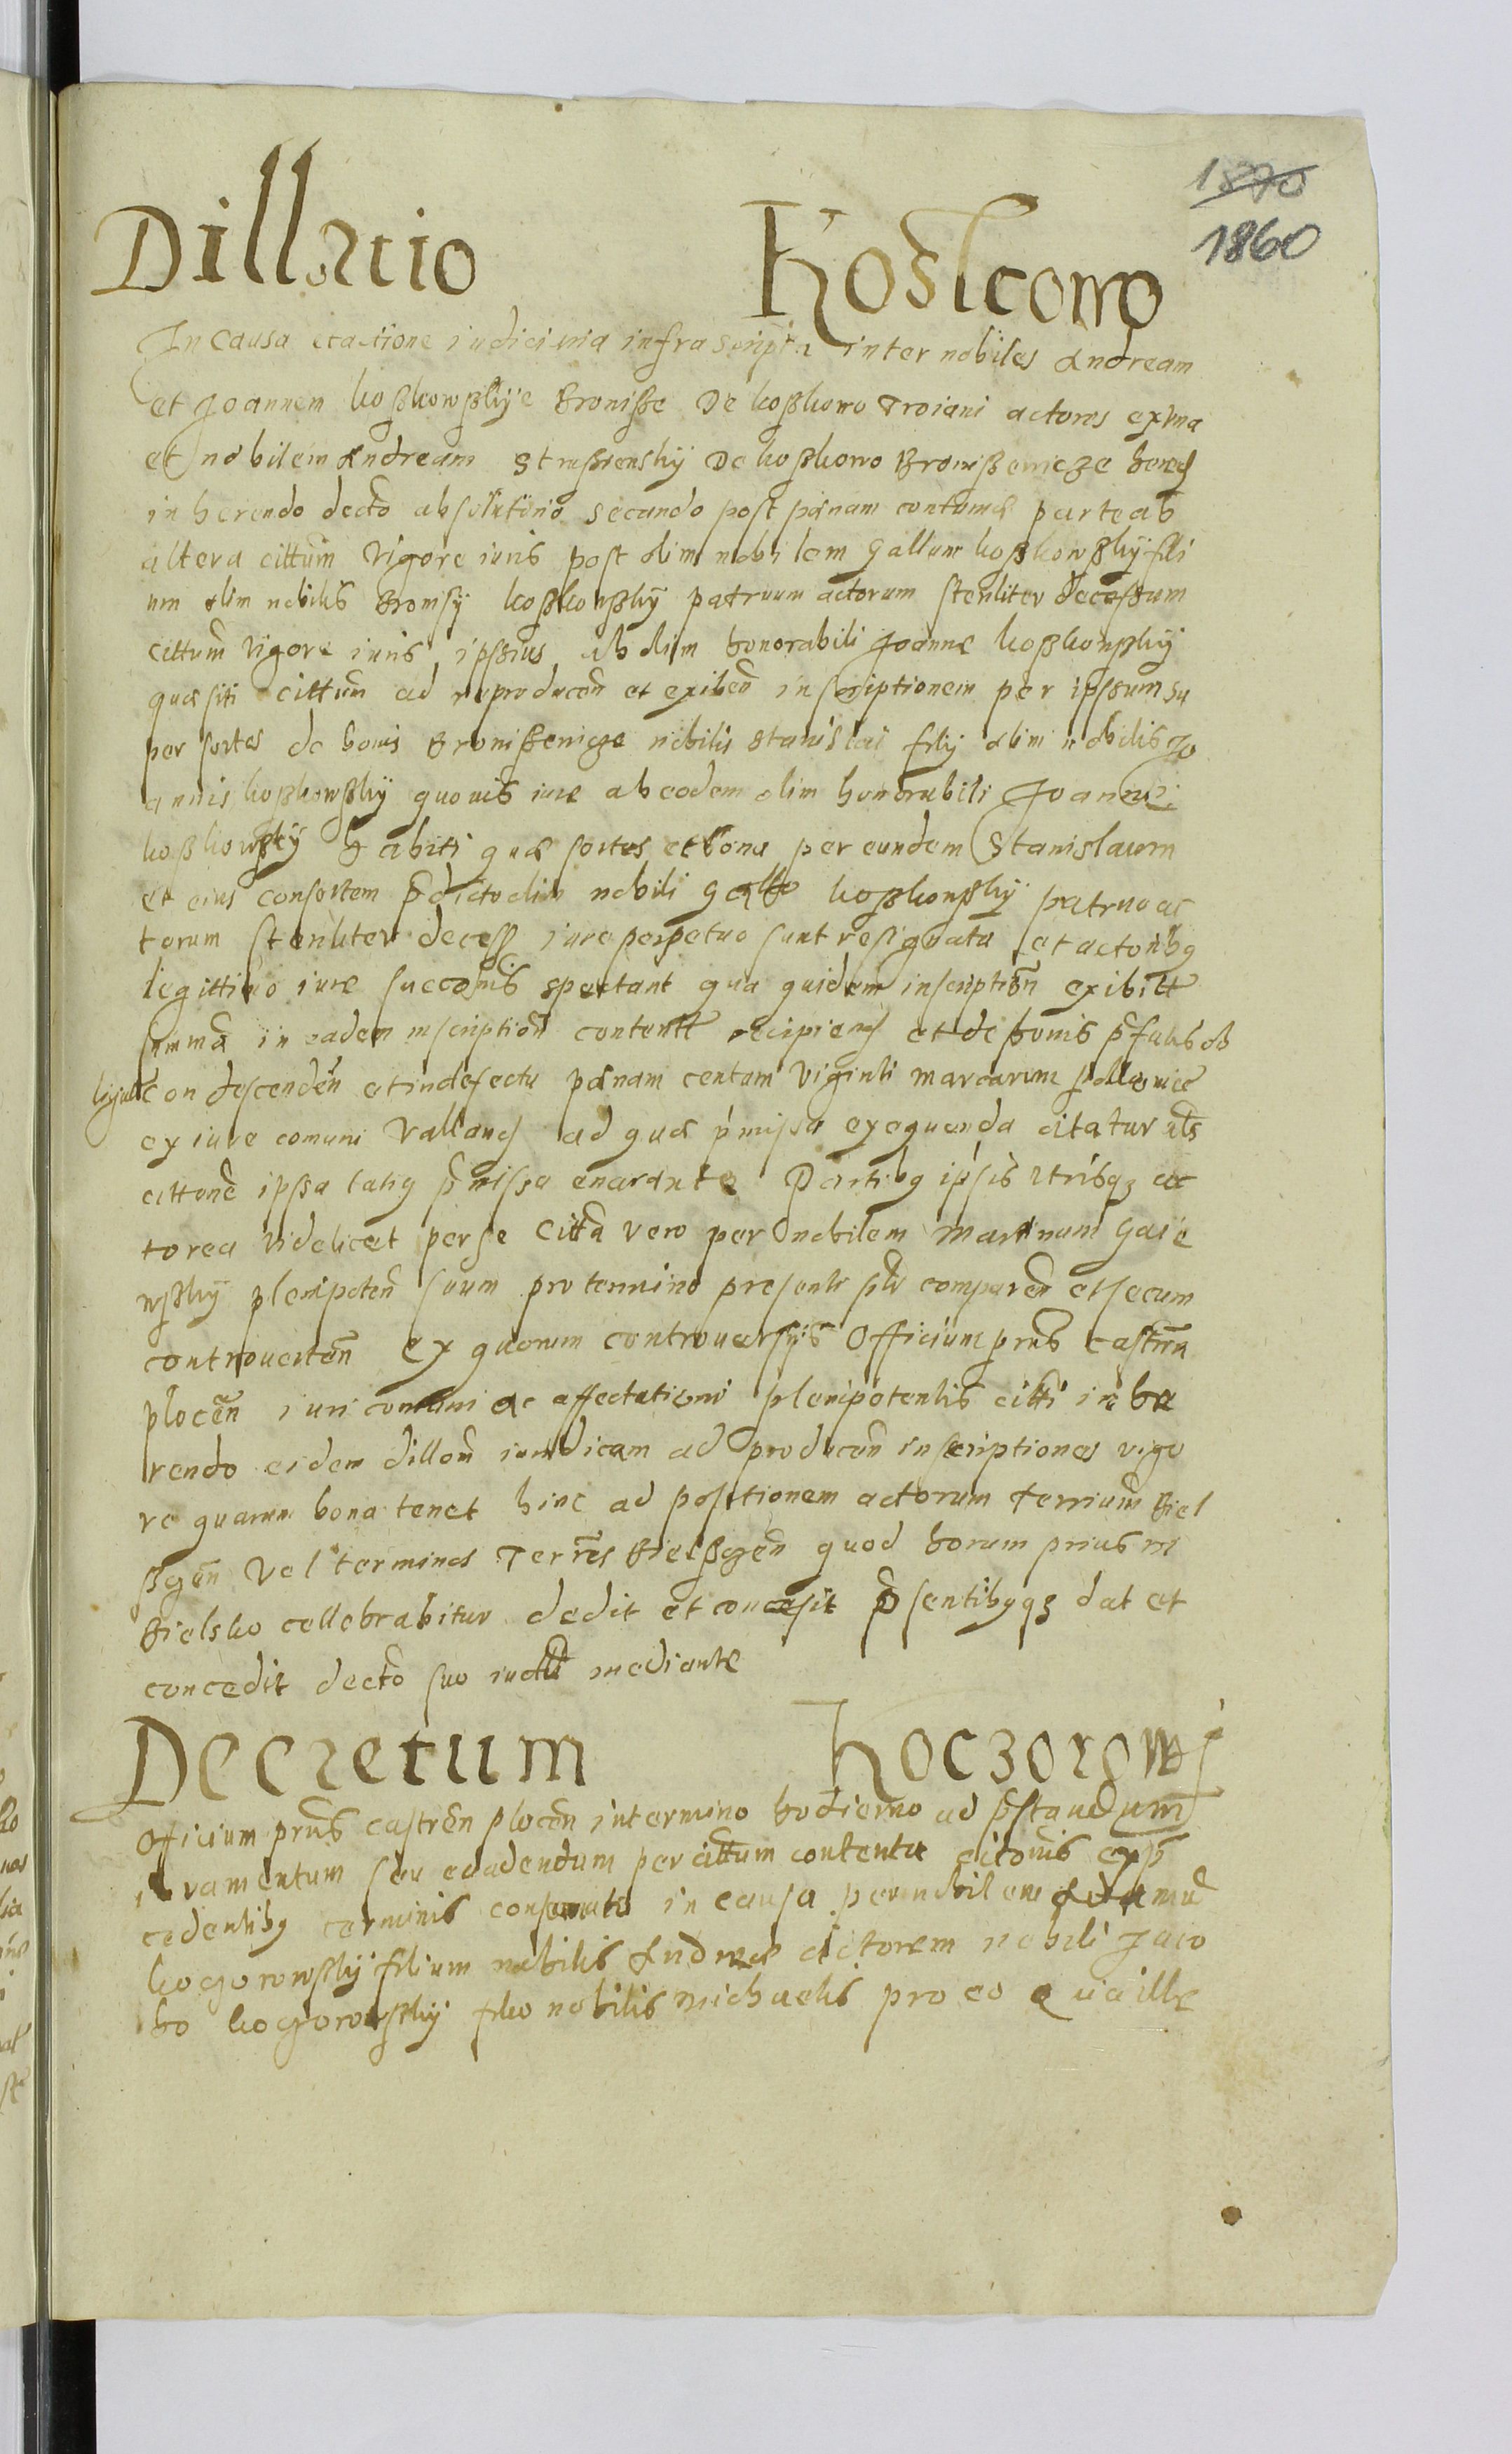 1870
1860
Dillatio Koskowo
In Causa et actione iudiciaria infrascripta inter nobiles Andream
et Joannem koßkowßkÿe Bronisße De koßkowo Troiani actores ex vna
et nobilem Andream Strusienskÿ De koßkowo Bronißewicze hered
in herendo decto absolutorio secundo post pænam contumac parte ab
altera cittum Vigore iuris post olim nobilem Gallum koßkowßkÿ fili
um olim nobilis Bronisÿ koßkowßkÿ patruum actorum steriliter decessum
cittum Vigore iuris ipsius ab olim honorabili Joanne koßkowßkÿ
quæsiti cittum ad reproducen et exiben inscriptionem per ipsum su
per sortes de bonis Bronißewicze nobilis Stanislai filÿ olim nobilis Jo
annis koßkowßkÿ quouis iure ab eodem olim honorabili Joanne
koßkowßkÿ habiti quæ sortes et bona per eundem Stanislaum
et eius consortem pdicto olim nobili Gallo koßkowßkÿ patruo ac
torum steriliter decess iure perpetuo sunt resignata et actoribq
legittimo iure succonis spectant qua quidem inscription exibitt
summa in eadem inscription contentt recipien et de bonis pfatis ob
ligat condescenden et in defectu pænam centum viginti marcarum pollonice
ex iure comuni Vallan ad quæ pmissa exequenda citatur uts
cittone ipsa latiq pmissa enarante Partibq ipsis vtrisqz ac
torea videlicet per se Citta vero per nobilem Martinum Gaie
wskÿ plenipoten suum pro termino presenti plr comparen et secum
controuerten ex quorum controuersÿs Officium prns castren
plocen iuri comuni ac affectationi plenipotentis citti inhæ
rendo eidem dillom iuridicam ad producen inscriptiones vigo
re quarum bona tenet hinc ad positionem actorum Terrium Biel
ßzen Vel terminos Terres Bielßzen quod horum prius in
Bielsko cellebrabitur dedit et concesit psentibqqz dat et
concedit decto suo iudli mediante
Decretum Koczorows
Officium prns castren plocen in termino hodierno ad pstandum
iuramentum seu euadendum per cittum contenta citonis ex p
cedentibq terminis conseruato in causa per nobilem Adamu
kogorowskÿ filium nobilis Andreæ actorem nobili Jaco
bo kogorowskÿ filio nobilis Michaelis pro eo Quia ille